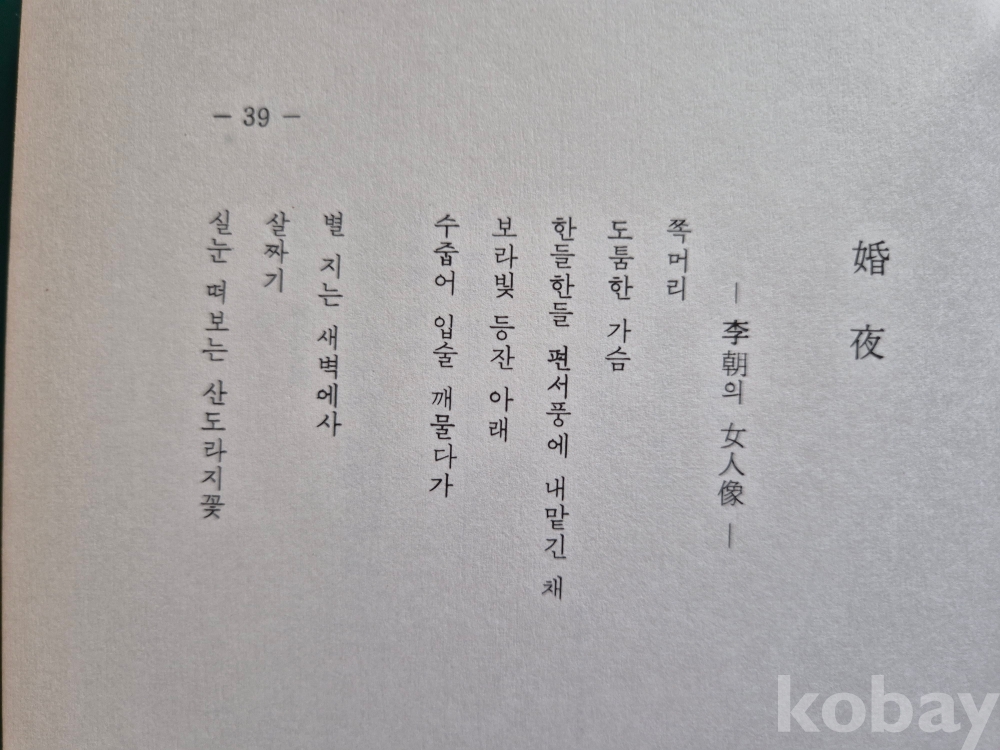 婚夜
― 李朝의 女人像 ―
쪽머리
도툼한 가슴
한들한들 편서풍에 내맡긴 채
보라빛 등잔 아래
수줍어 입술 깨물다가
별 지는 새벽에사
살짜기
실눈 떠보는 산도라지꽃
― 39 ―
kobay